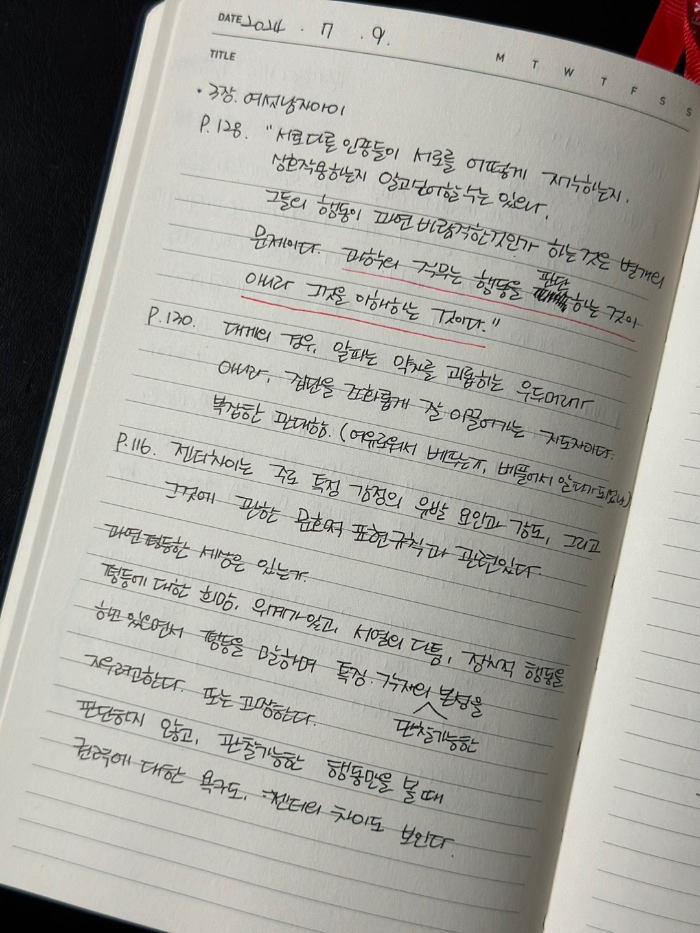 DATE 2024 . 7 . 9.
TITLE
M T W T F S S
• 3장. 여섯남자아이
P.128. "서로다른 인종들이 서로를 어떻게 지각하는지.
상호작용하는지 알고싶어할수는 있으나,
그들의 행동이 과연 바람직한것인가 하는것은 별개의
문제이다. 과학의 직무는 행동을 판단하는 것이
아니라 그것을 이해하는 것이다."
P.130. 대개의 경우, 알파는 약자를 괴롭히는 우두머리가
아니라, 집단을 조화롭게 잘 이끌어가는 지도자이다.
복잡한 판대향. (여유로워서 베푸는지, 베풀어서 알파가되었나)
P.116. 젠더차이는 주로 특정 감정의 유발 요인과 강도, 그리고
그것에 관한 문화적 표현규칙과 관련있다.
과연 평등한 세상은 있는가.
평등에 대한 희망, 위계가 있고, 서열의 다툼, 정치적 행동을
하고 있으면서 평등을 말하며 특정. 각자의 본성을
지우려고한다. 또는 고명한다. 관찰가능한
판단하지 않고, 관찰가능한 행동만을 볼때
권력에 대한 욕구도, 젠더의 차이도 보인다.